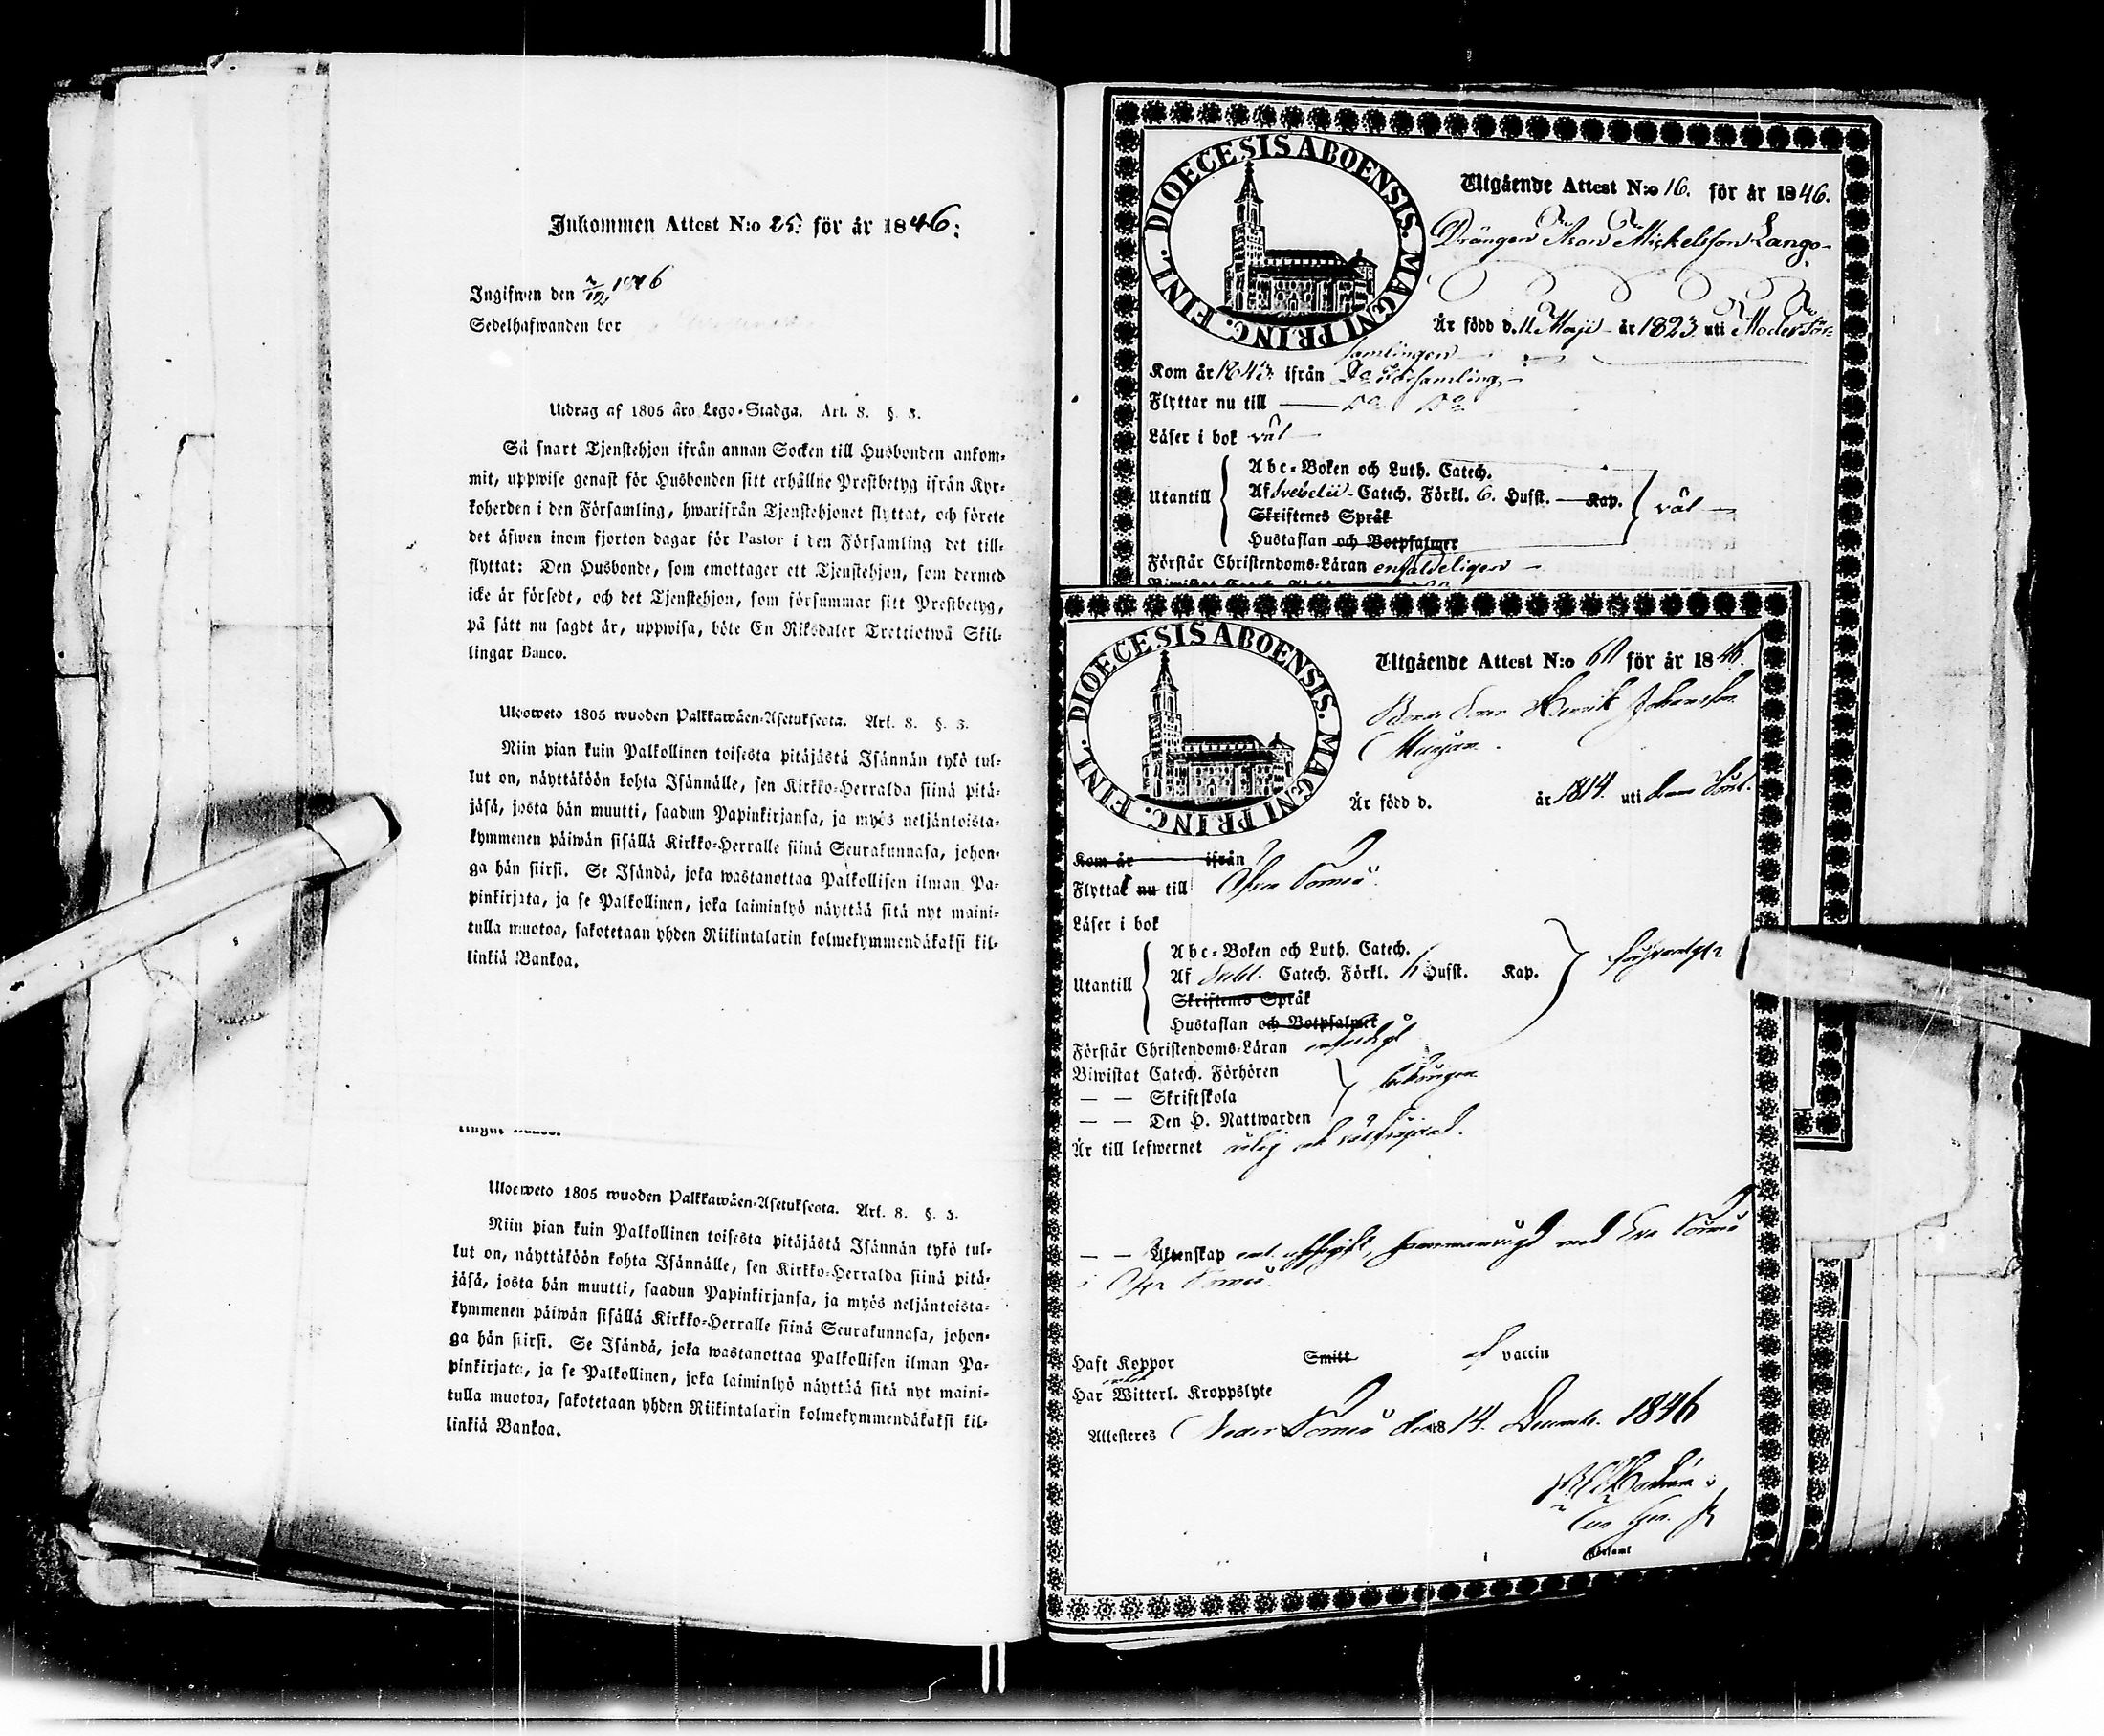 Inkommen Attest N:o 25. för år 1846:
Ingifwen den 7/12 1846
Sedelhafwanden bor
Utdrag af 1805 års Lego-Stadga. Art. 8. §. 3.
Så snart Tjenstehjon ifrån annan Socken till Husbonden ankom-
mit, uppwise genast för Husbonden sitt erhållne Prestbetyg ifrån Kyr-
koherden i den Församling, hwarifrån Tjenstehjonet flyttat, och förete
det äfwen inom fjorton dagar för Pastor i den Församling det till-
flyttat: Den Husbonde, som emottager ett Tjenstehjon, som dermed
icke är försedt, och det Tjenstehjon, som försummar sitt Prestbetyg,
på sätt nu sagdt är, uppwisa, böte En Riksdaler Trettiotwå Skil-
lingar Banco.
Ulosweto 1805 wuoden Palkkawäen-Asetuksesta. Art. 8. §. 3.
Niin pian kuin Palkollinen toisesta pitäjästä Isännän tykö tul-
lut on, näyttäköön kohta Isännälle, sen Kirkko-Herralda siinä pitä-
jäsä, josta hän muutti, saadun Papinkirjansa, ja myös neljäntoista-
kymmenen päiwän sisällä Kirkko-Herralle siinä Seurakunnasa, johon-
ga hän siirsi. Se Isändä, joka wastanottaa Palkollisen ilman Pa-
pinkirjata, ja se Palkollinen, joka laiminlyö näyttää sitä nyt maini-
tulla muotoa, sakotetaan yhden Riikintalarin kolmekymmendäkaksi kil-
linkiä Bankoa.
Ulosweto 1805 wuoden Palkkawäen-Asetuksesta. Art. 8. §. 3.
Niin pian kuin Palkollinen toisesta pitäjästä Isännän tykö tul-
lut on, näyttäköön kohta Isännälle, sen Kirkko-Herralda siinä pitä-
jäsä, josta hän muutti, saadun Papinkirjansa, ja myös neljäntoista-
kymmenen päiwän sisällä Kirkko-Herralle siinä Seurakunnasa, johon-
ga hän siirsi. Se Isändä, joka wastanottaa Palkollisen ilman Pa-
pinkirjata, ja se Palkollinen, joka laiminlyö näyttää sitä nyt maini-
tulla muotoa, sakotetaan yhden Riikintalarin kolmekymmendäkaksi kil-
linkiä Bankoa.
DIOECESIS ABOENSIS. MAGNI PRINC. FINL.
Utgående Attest N:o 16. för år 1846.
Drängen Aron Mickelsson Lango
Är född d. 11 Maji år 1823 uti Moderför-
samlingen
Kom år 1845 ifrån församling
Flyttar nu till Do Do
Läser i bok väl
Utantill
Abc-Boken och Luth. Catech.
Af Svebelii Catech. Förkl. 6. Hufst. Kap.
väl
Skriftenes Språk
Hustaflan och Botpsalmer
Förstår Christendoms-Läran enfaldeligen
DIOECESIS ABOENSIS. MAGNI PRINC. FINL.
Utgående Attest N:o för år 1846.
Bonde Sonen Henrik Johansson
Är född d. år 1814. uti
Kom år ifrån
Flyttat nu till Öfver Torneå
Läser i bok
Utantill
Abc-Boken och Luth. Catech.
Af Catech. Förkl. Hufst. Kap.
Skriftenes Språk
Hustaflan och Botpsalmer
Förstår Christendoms-Läran
Biwistat Catech. Förhören
— — Skriftskola
— — Den H. Nattwarden
Är till lefwernet ärlig och
— — Äktenskap enl. uppgift, sammanvigd med Eva
i Öfver Torneå
Haft Koppor Smitt af vaccin
Har Witterl. Kroppslyte
Attesteres Neder Torneå den 14. Decemb. 1846